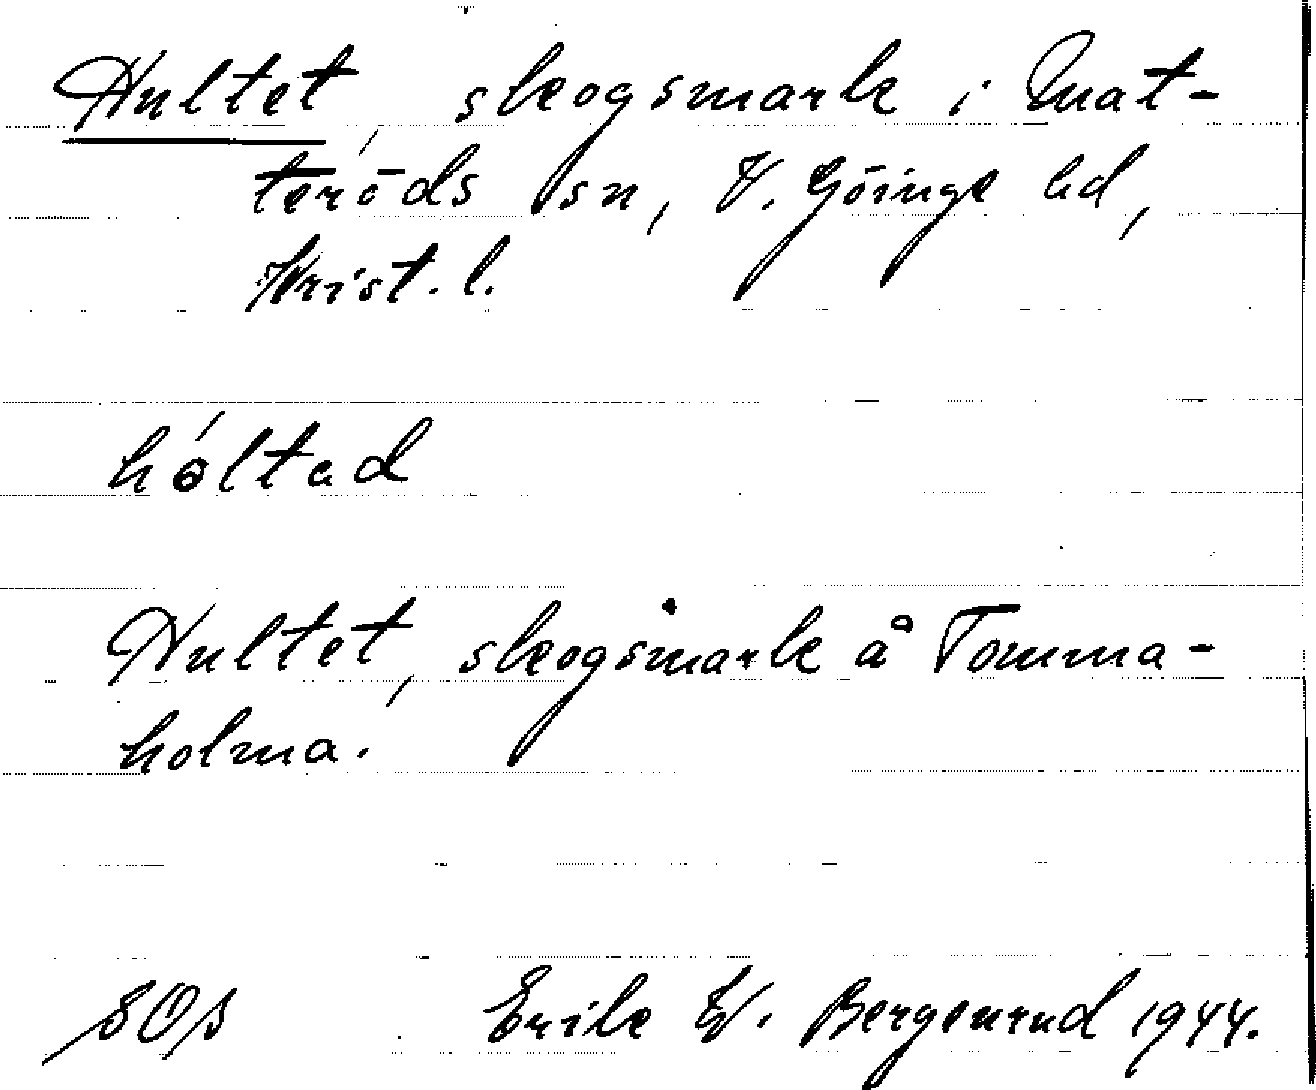 Hultet, skogsmark i Mat-
teröds sn, V. Göinge hd,
Krist. l.
hóltad
Hultet, skogsmark å Tomma-
holma.
SOS Erik W. Bergenrud 1944.